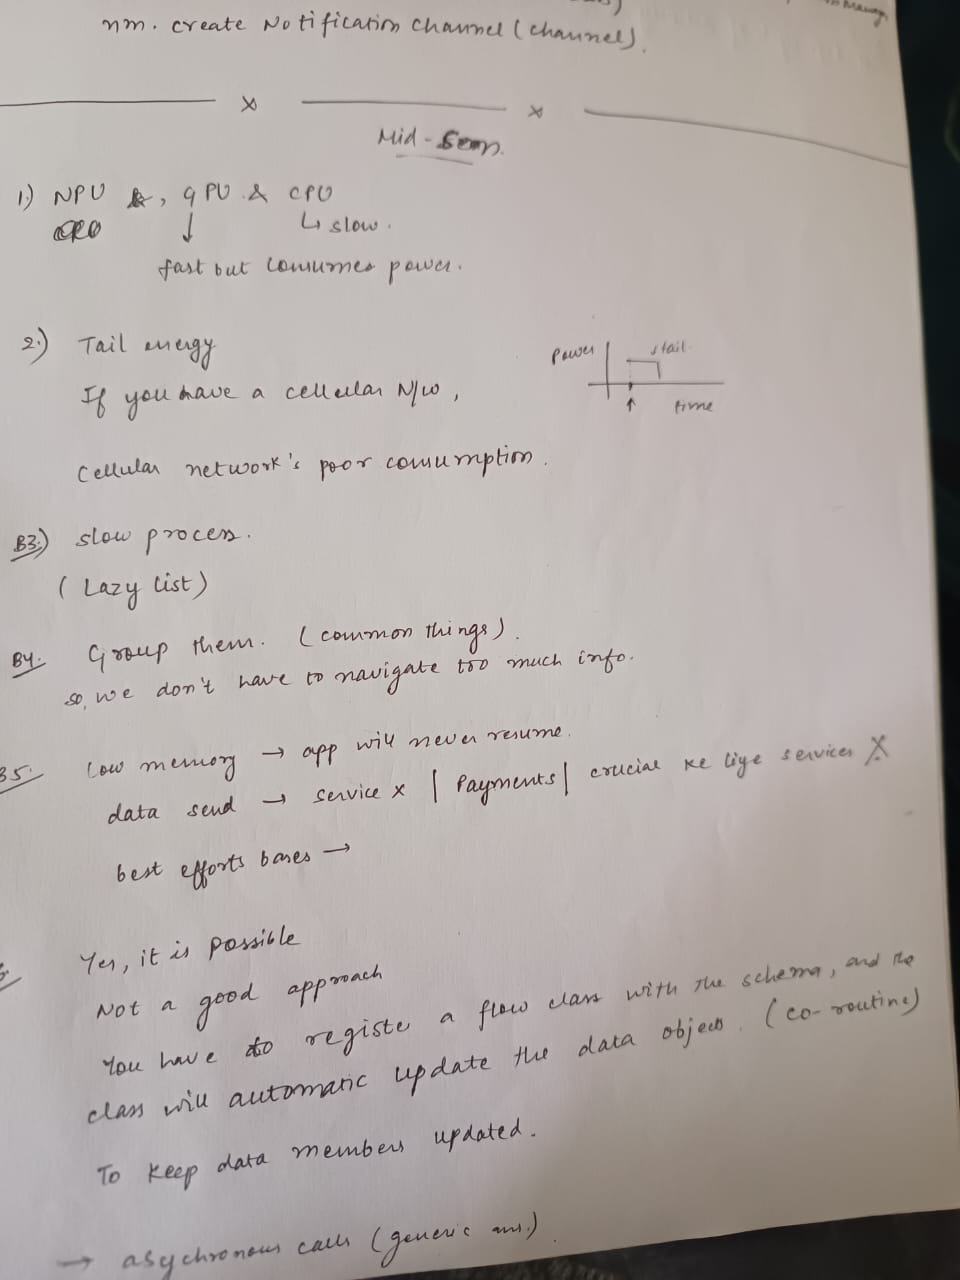 nm. create Notification Channel (channel).
x x
Mid-Sem.
1.) NPU &, GPU & CPU
↓ ↳ slow.
fast but consumes power.
2.) Tail energy
Power tail
If you have a cellular N/w,
↑ time
Cellular network's poor consumption.
B3.) slow process.
(Lazy list)
B4. Group them. (common things).
so, we don't have to navigate too much info.
B5. Low memory → app will never resume.
data send → service x | Payments | crucial ke liye services X
best efforts bases →
Yes, it is possible
Not a good approach
You have to registe a flow class with the schema, and the
class will automatic update the data objects. (co-routine)
To keep data members updated.
→ asychronous calls (generic ans.)